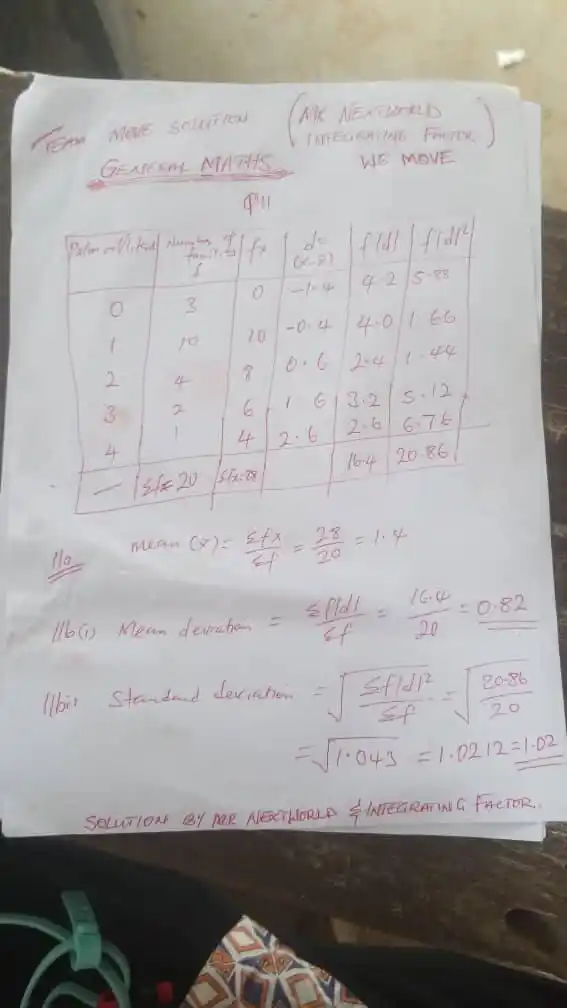 TEAM MOVE SOLUTION (MR NEXTWORLD
INTEGRATING FACTOR)
GENERAL MATHS WE MOVE
Q11
Number of families f | fx | d= (x-x̄) | f|d| | f|d|²
0 | 3 | 0 | -1.4 | 4.2 | 5.88
1 | 10 | 10 | -0.4 | 4.0 | 1.66
2 | 4 | 8 | 0.6 | 2.4 | 1.44
3 | 2 | 6 | 1.6 | 3.2 | 5.12
4 | 1 | 4 | 2.6 | 2.6 | 6.76
— | Σf=20 | Σfx=28 | | 16.4 | 20.86
11a mean (x) = Σfx/Σf = 28/20 = 1.4
11b(i) Mean deviation = Σf|d|/Σf = 16.4/20 = 0.82
11bii Standard deviation = √Σf|d|²/Σf = √20.86/20
= √1.043 = 1.0212 = 1.02
SOLUTION BY MR NEXTWORLD & INTEGRATING FACTOR.